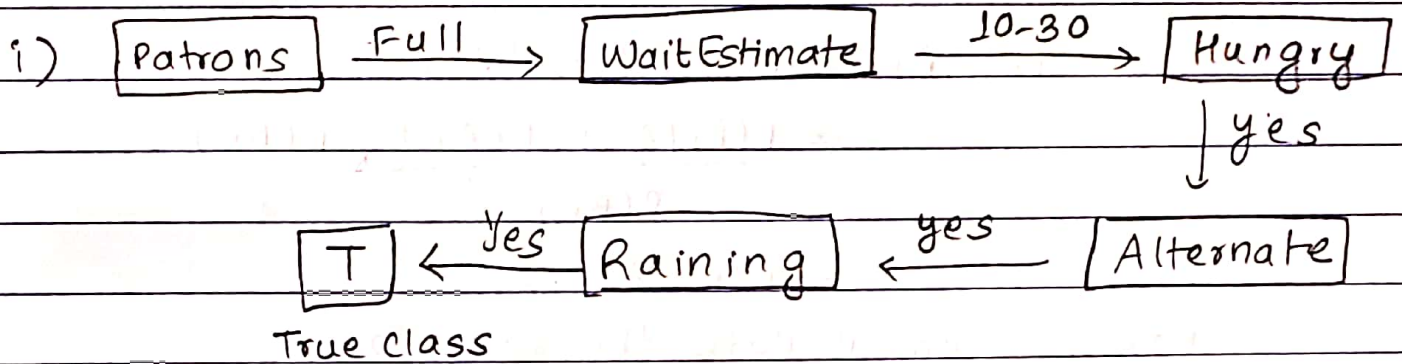 i) Patrons Full WaitEstimate 10-30 Hungry
yes
T Yes Raining yes Alternate
True class